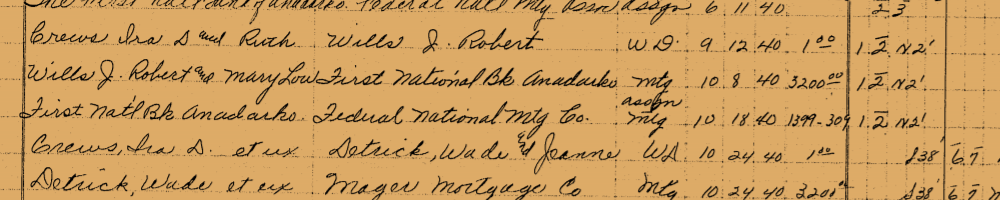 The First Nat'l Bank of Anadarko. Federal Nat'l Mtg Assn assgn 6 11 40. 2 3
Crews Ira D and Ruth Wills J. Robert WD. 9 12 40 1 00 1 2 N2'
Wills J. Robert and Mary Lou First National Bk Anadarko mtg 10 8 40 3200 00 1 2 N2'
First Nat'l Bk Anadarko. Federal National Mtg Co. assgn mtg 10 18 40 1399-309 1 2 N2'
Crews, Ira D. et ux Detrick, Wade and Jeanne WD 10 24 40 1 00 S38' 6 7
Detrick, Wade et ux Mager Mortgage Co Mtg. 10 24 40 3200 00 S38' 6 7